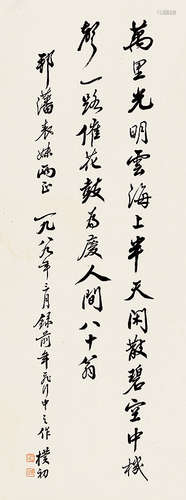 萬里光明雲海上半天閑散碧空中機
聲一路催花鼓為慶人間八十翁
藩表妹兩正 一九八八年二月錄前年飛行中之作 樸初